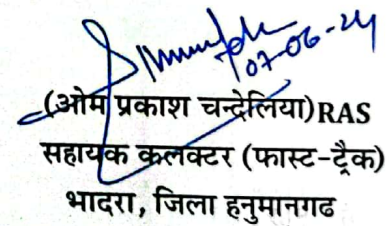 07-06-24
(ओम प्रकाश चन्देलिया)RAS
सहायक कलक्टर (फास्ट-ट्रैक)
भादरा, जिला हनुमानगढ